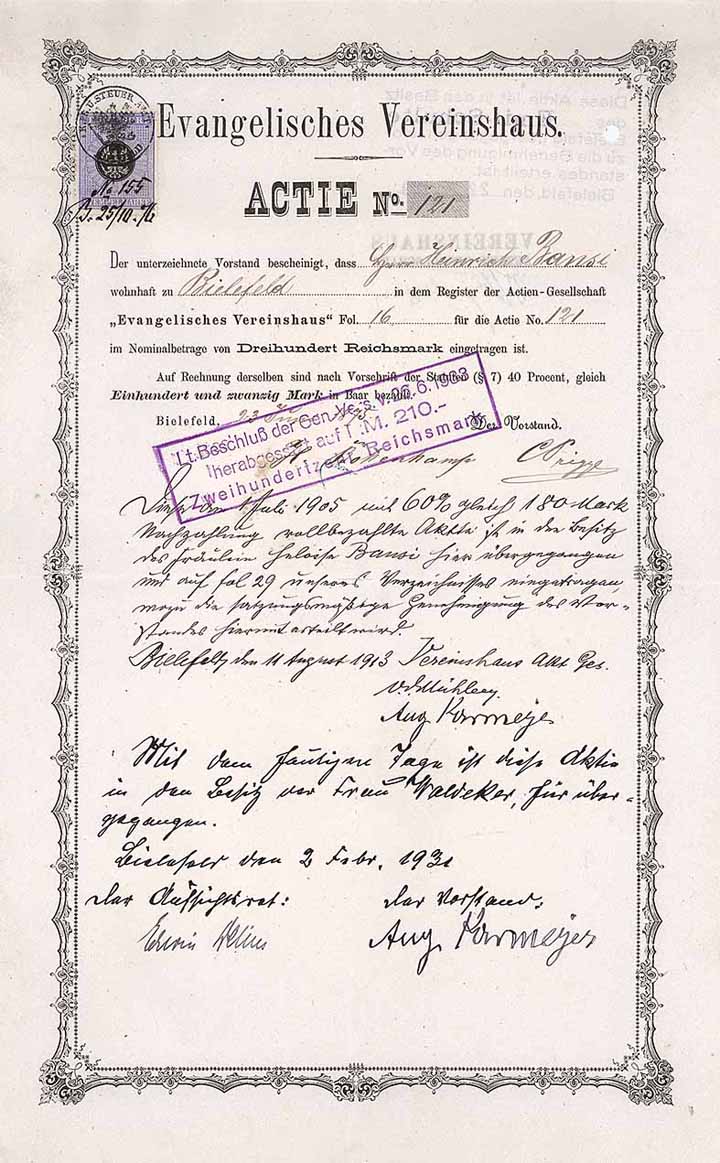 Evangelisches Vereinshaus.
No 155
25/10.
ACTIE No. 121
Der unterzeichnete Vorstand bescheinigt, dass Herr Heinrich Bansi
wohnhaft zu Bielefeld in dem Register der Actien-Gesellschaft
„Evangelisches Vereinshaus" Fol. 16 für die Actie No. 121
im Nominalbetrage von Dreihundert Reichsmark eingetragen ist.
Auf Rechnung derselben sind nach Vorschrift der Statuten (§ 7) 40 Procent, gleich
Einhundert und zwanzig Mark in Baar bezahlt.
Bielefeld, 23 Der Vorstand.
Lt. Beschluß der Gen. Vers. v. 26.6.1903
herabgesetzt auf M. 210.-
Zweihundertzehn Reichsmark
Diese den 1 Juli 1905 mit 60% gleich 180 Mark
Nachzahlung vollbezahlte Aktie ist in den Besitz
des Fräulein Heloise Bansi hier übergegangen
und auf fol 29 unseres Verzeichnisses eingetragen,
wozu die satzungsmäßige Genehmigung des Vor-
standes hiermit erteilt wird.
Bielefeld, den 11 August 1913 Vereinshaus Akt Ges.
Aug Kormeyer
Mit dem heutigen Tage ist diese Aktie
in den Besitz der Frau Waldeker, hier über-
gegangen.
Bielefeld den 2 Febr. 1931
Der Aufsichtsrat: Der Vorstand:
Edwin Aug Kormeyer